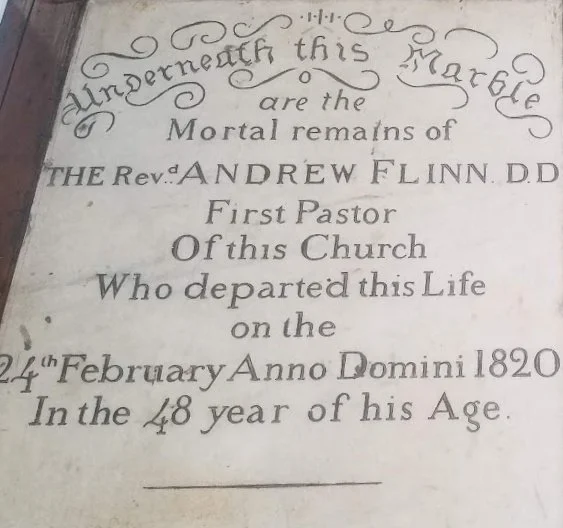 Underneath this Marble
are the
Mortal remains of
THE Rev.ᵈ ANDREW FLINN. D.D
First Pastor
Of this Church
Who departed this Life
on the
24th February Anno Domini 1820
In the 48 year of his Age.